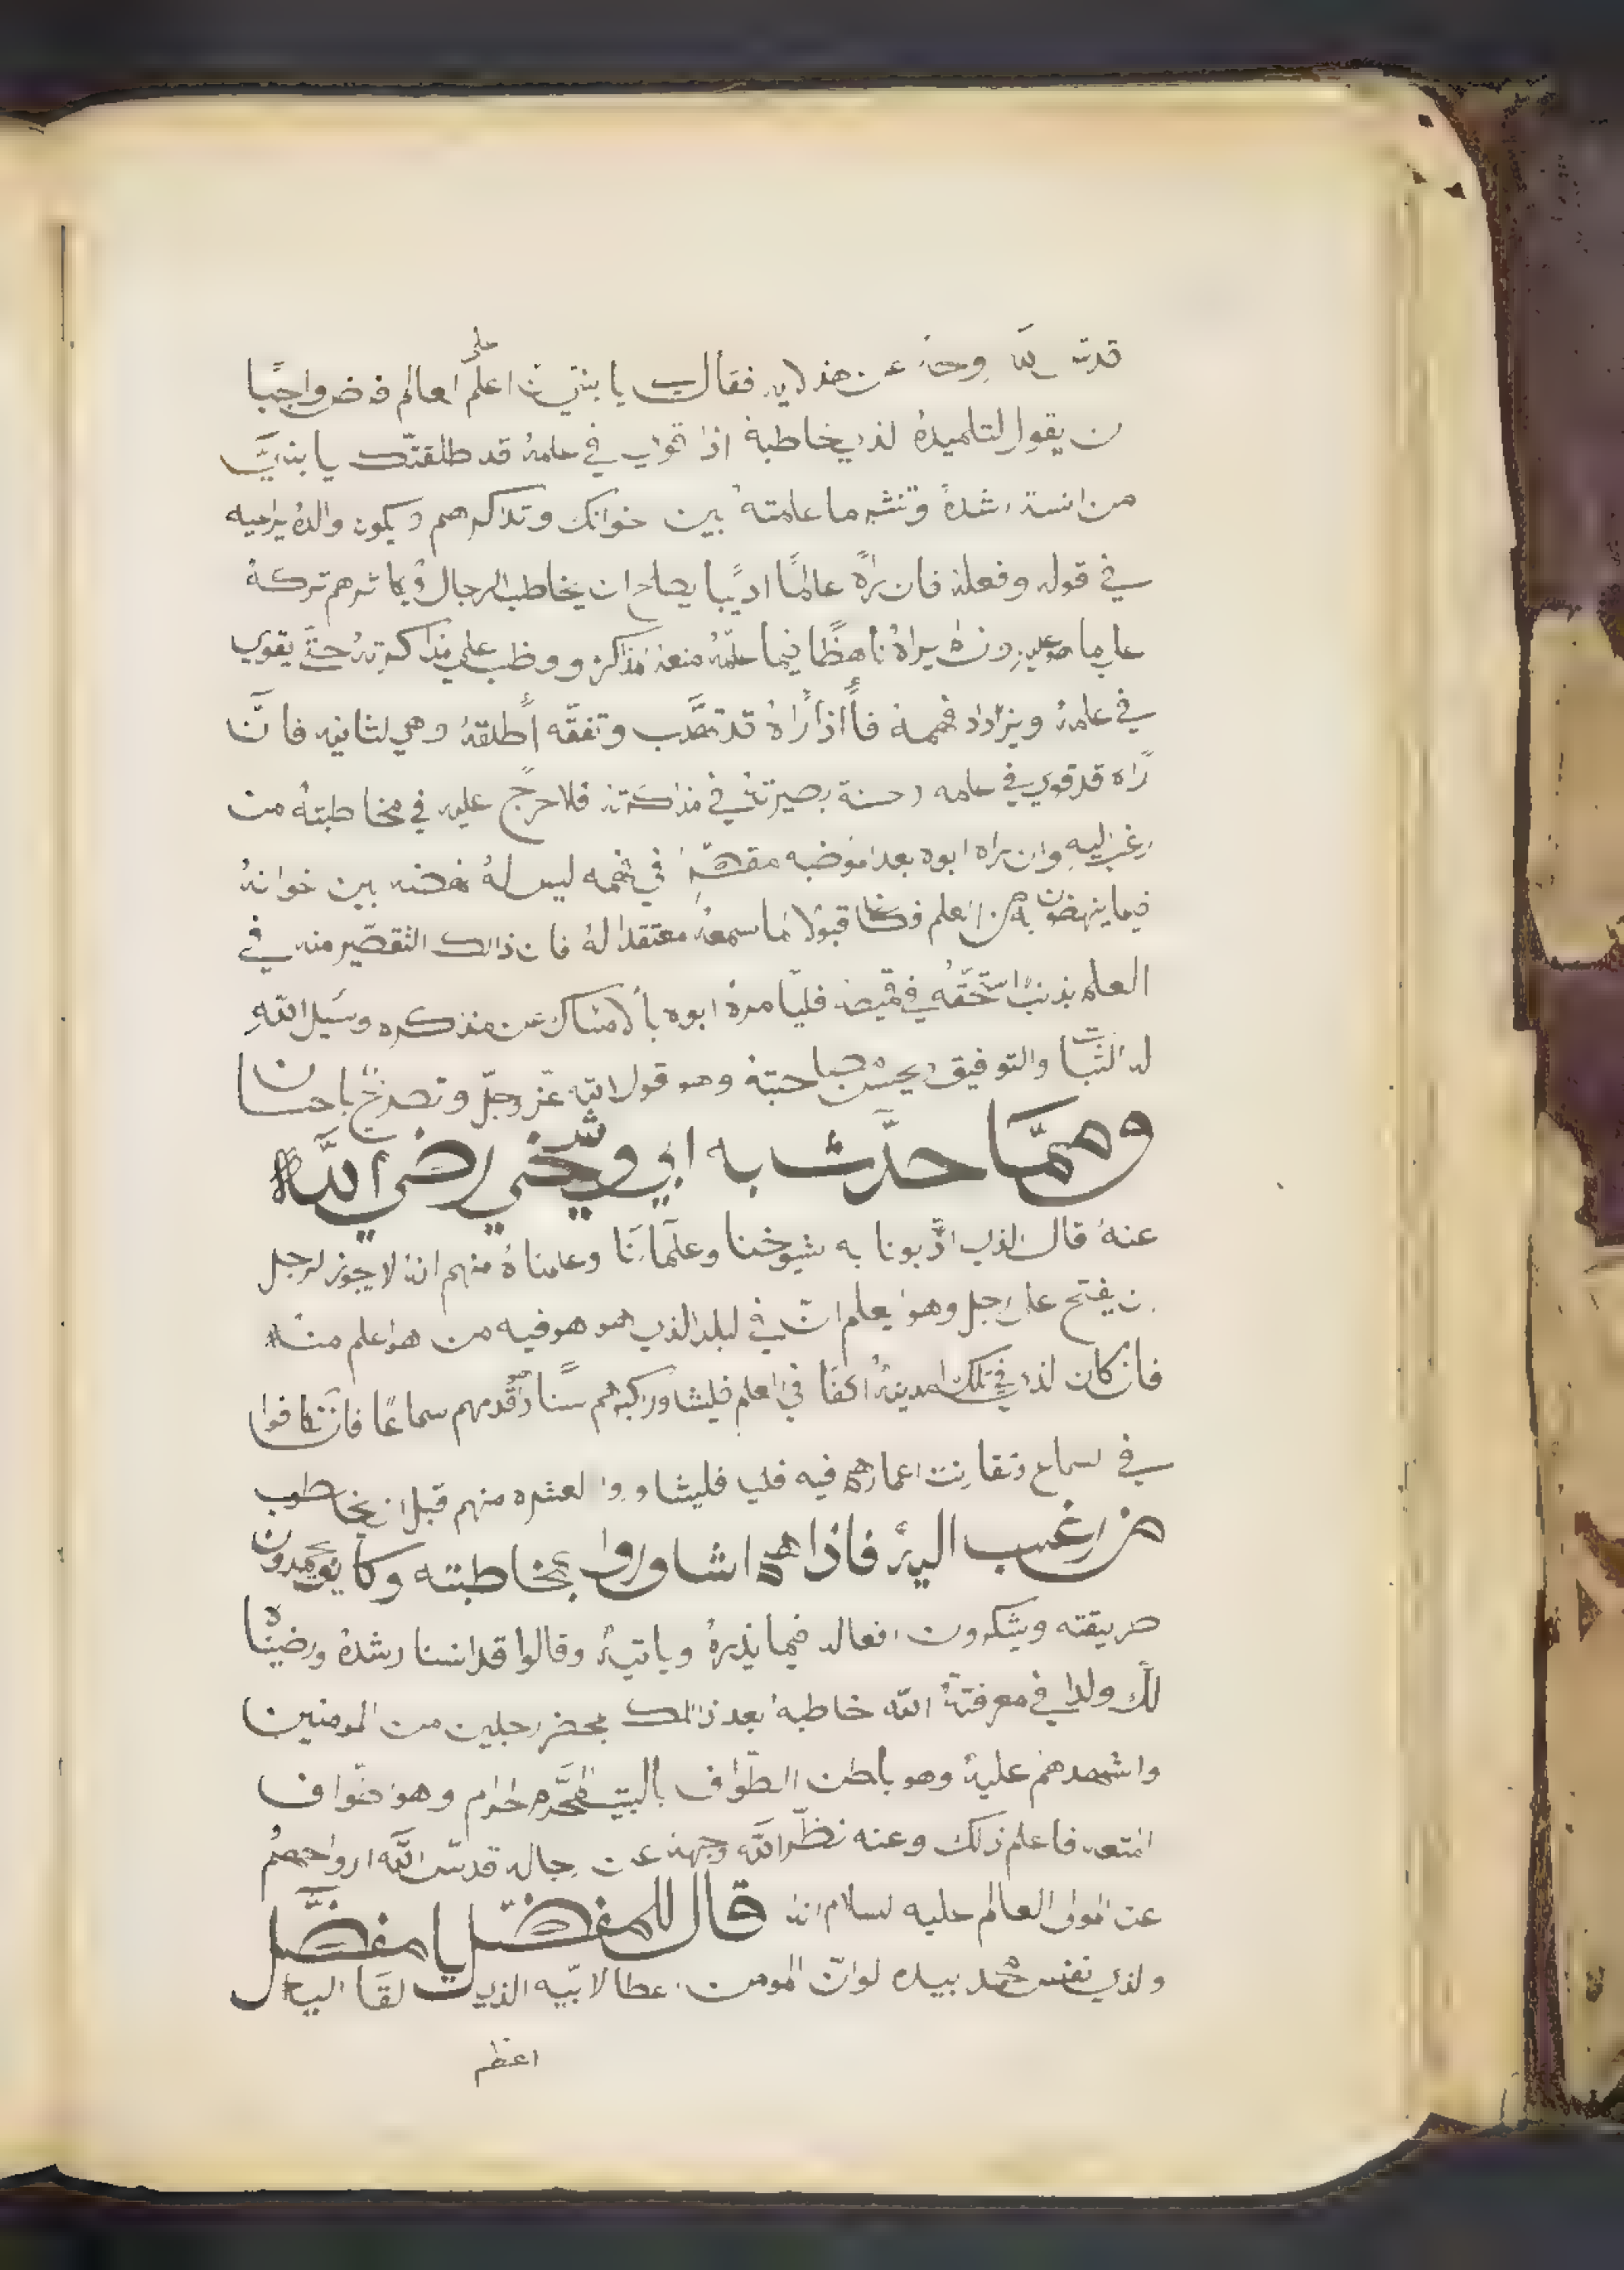 قدس الله روحه عن هذه الايه فقال يا بني ان اعلم على العالم فرض واجبا
ان يقول لتلميذه الذي يخاطبه اذا قوي في علمه قد طلقتك يا بني
من انست رشده وتنشر ما علمته بين اخوانك وتذاكرهم ويكون والده يراعيه
في قوله وفعله فان رآه عالمًا اديبًا يصلح ان يخاطب الرجال ويكاثرهم تركه
على ما هو عليه وان يراه ناهضًا فيما علمه منعه مذاكره ووظب على مذاكرته حتى يقوي
في علمه ويزداد فهمه فأذا رأه قد تهذب وتفقه أطلقه وهي الثانيه فان
رآه قد قوي في علمه وحسنة بصيرته في مذاكرته فلا حرج عليه في مخاطبته من
رغب اليه وان يراه ابوه بعد مقصّر في فهمه ليس له نهضه بين اخوانه
فيما ينهضون به من العلم وكان قبولا لما سمعه معتقدا له فان ذالك التقصير منه في
العلم بذنب استحقه في قميصه فليأمره ابوه بالامساك عن مذكره وسيل الله
له الثبات والتوفيق ويحسن صاحبته وهو قول الله عز وجل وتصريح باحسان
وممّا حدّث به ابي وشيخي رضي اللّه
عنه قال الذي ادّبونا به شيوخنا وعلمآئنا وعلمناه منهم انه لا يجوز لرجل
ان يفتح على رجل وهو يعلم ان في البلد الذي هو هو فيه من هو اعلم منه
فان كان الذي في تلك المدينة اكفا في العلم فليشاور اكبرهم سنًا واقدمهم سماعًا فان تكافوا
في السماع وتقارنت اعمارهم فيه فليشاوروا العشره منهم قبل ان يخاطب
من رغب اليه فاذا هم اشاوروا بمخاطبته وكانوا يحمدون
طريقته ويشكرون افعاله فيما يذره وياتيه وقالوا قد انسنا رشده ورضيناه
لك ولدا في معرفة الله خاطبه بعد ذالك بمحضر رجلين من المومنين
واشهدهم عليه وهو باطن الطواف بالبيت المحرم الحرام وهو طواف
المتعه فاعلم ذلك وعنه نظّر الله وجهه عن رجاله قدس الله ارواحهم
عن المولى العالم عليه السلام انه قال للمفضّل يا مفضّل
والذي نفس محمد بيده لو انّ المومن اعطا لابيه الذي القا اليه
اعظم